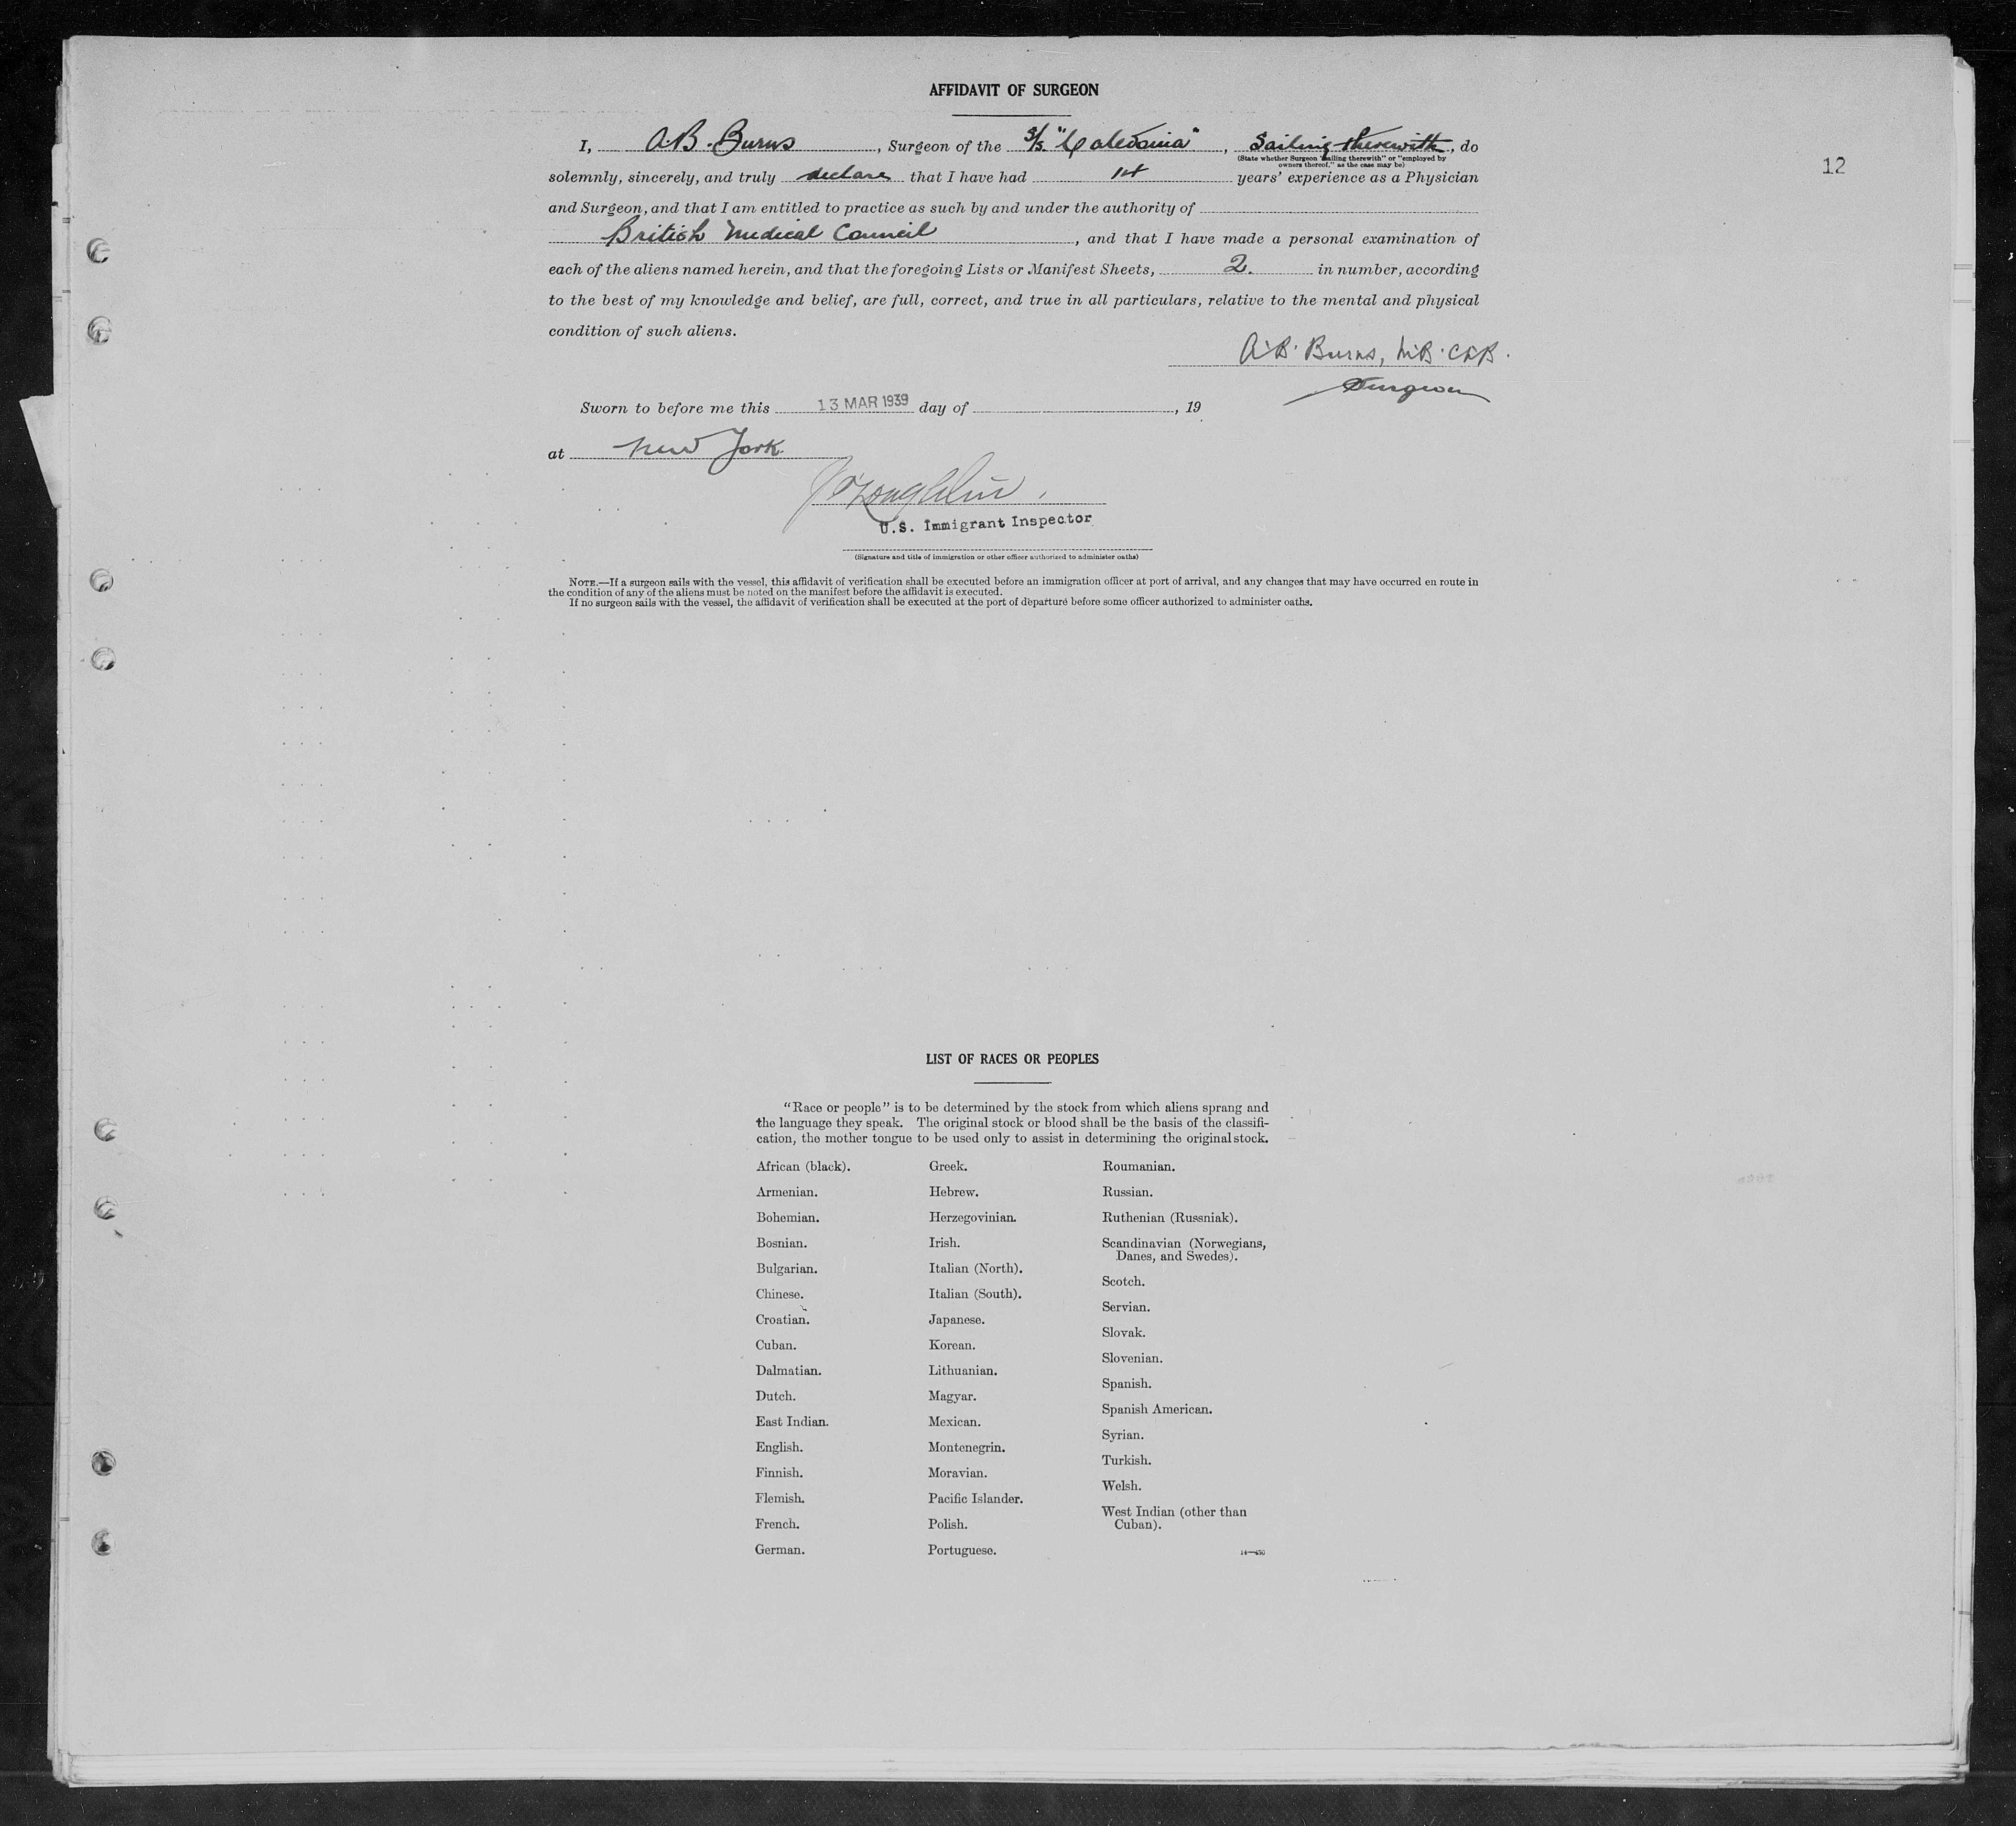 AFFIDAVIT OF SURGEON
I, A.B. Burns, Surgeon of the S/S. "Caledonia", Sailing therewith, do
(State whether Surgeon "sailing therewith" or "employed by
owners thereof," as the case may be)
12
solemnly, sincerely, and truly declare that I have had 14 years' experience as a Physician
and Surgeon, and that I am entitled to practice as such by and under the authority of
British Medical Council, and that I have made a personal examination of
each of the aliens named herein, and that the foregoing Lists or Manifest Sheets, 2. in number, according
to the best of my knowledge and belief, are full, correct, and true in all particulars, relative to the mental and physical
condition of such aliens.
A.B. Burns, M.B. Ch.B.
Surgeon
Sworn to before me this 13 MAR 1939 day of , 19
at New York
U.S. Immigrant Inspector
(Signature and title of immigration or other officer authorized to administer oaths)
NOTE.—If a surgeon sails with the vessel, this affidavit of verification shall be executed before an immigration officer at port of arrival, and any changes that may have occurred en route in
the condition of any of the aliens must be noted on the manifest before the affidavit is executed.
If no surgeon sails with the vessel, the affidavit of verification shall be executed at the port of departure before some officer authorized to administer oaths.
LIST OF RACES OR PEOPLES
"Race or people" is to be determined by the stock from which aliens sprang and
the language they speak. The original stock or blood shall be the basis of the classifi-
cation, the mother tongue to be used only to assist in determining the original stock.
African (black).
Armenian.
Bohemian.
Bosnian.
Bulgarian.
Chinese.
Croatian.
Cuban.
Dalmatian.
Dutch.
East Indian.
English.
Finnish.
Flemish.
French.
German.
Greek.
Hebrew.
Herzegovinian.
Irish.
Italian (North).
Italian (South).
Japanese.
Korean.
Lithuanian.
Magyar.
Mexican.
Montenegrin.
Moravian.
Pacific Islander.
Polish.
Portuguese.
Roumanian.
Russian.
Ruthenian (Russniak).
Scandinavian (Norwegians,
Danes, and Swedes).
Scotch.
Servian.
Slovak.
Slovenian.
Spanish.
Spanish American.
Syrian.
Turkish.
Welsh.
West Indian (other than
Cuban).
14—430